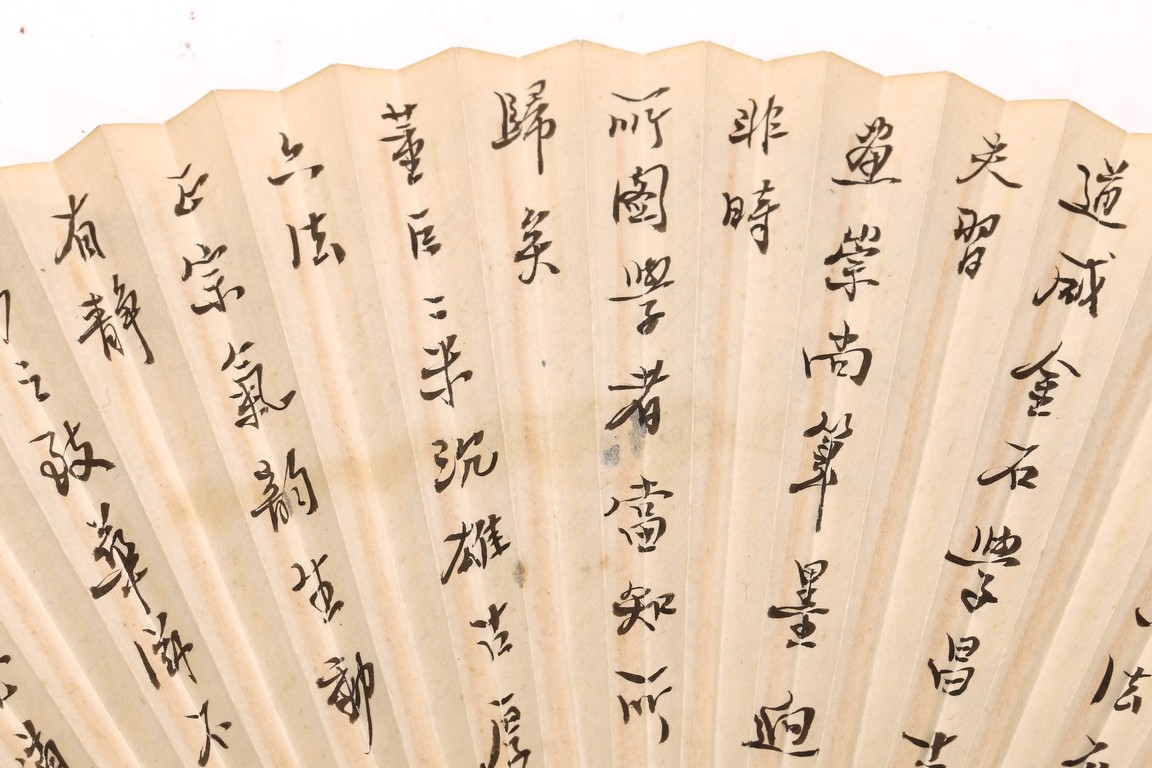 法
道咸金石學昌士
夫習
畫崇尚筆墨迥
非時
所圖學者當知所
歸矣
董巨二米沉雄古厚
六法
正宗氣韻生動
有靜
之致華滋不